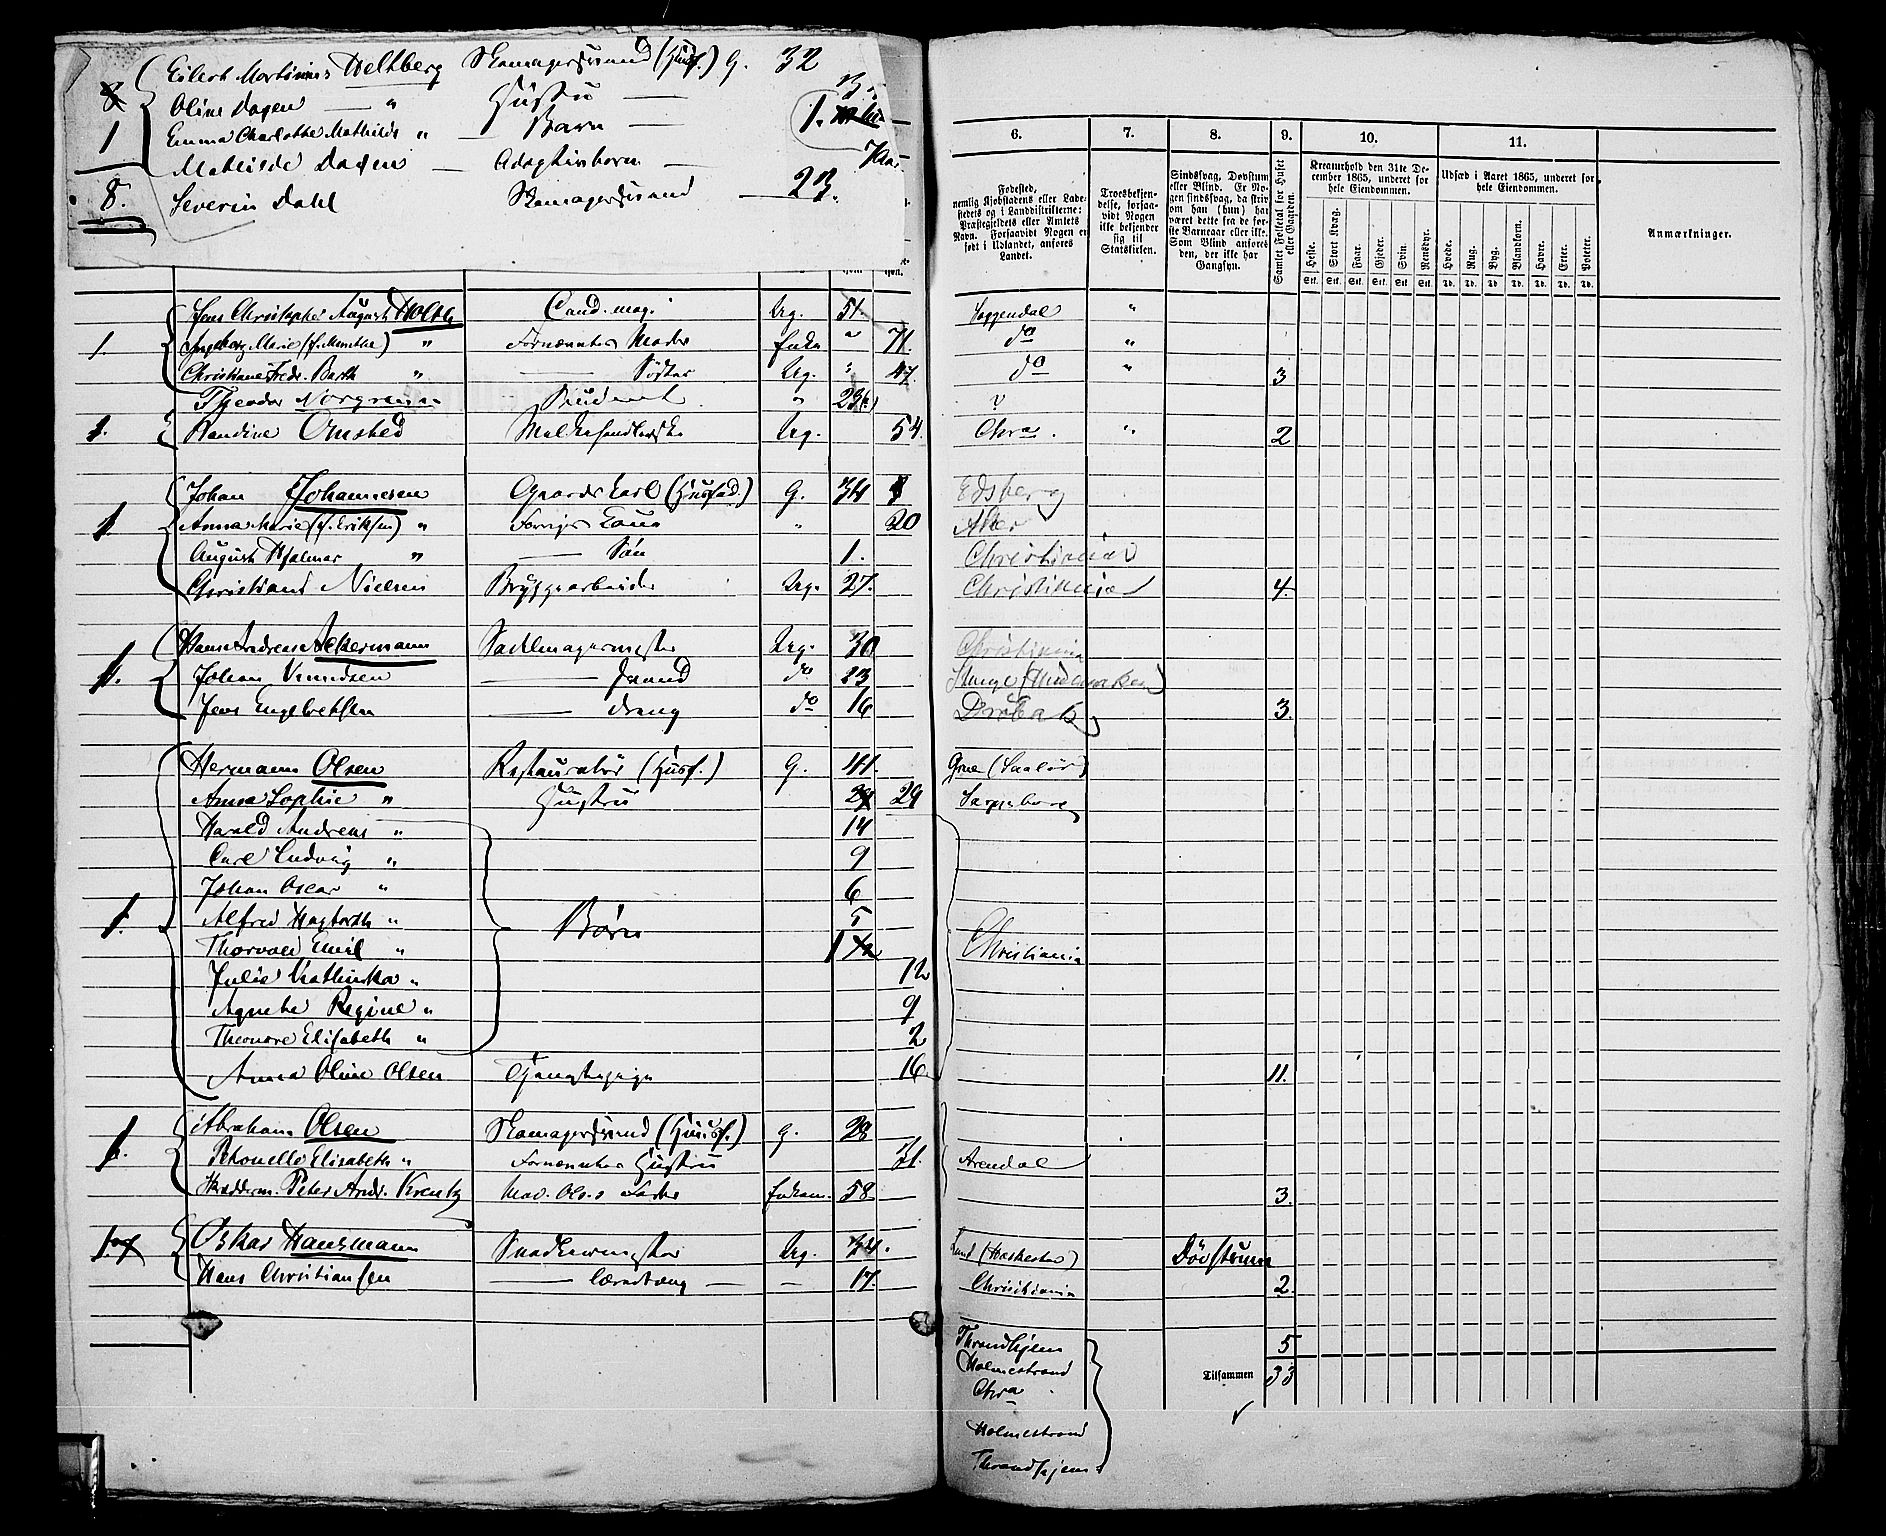 Eilert Martinius Heltberg Skomagersvend (Husf.) g. 32
8 Oline Dagen — " Hustru —
1 Emma Charlotte Mathilde " — Barn — 1.
Mathilde Dagen — Adoptivbarn —
8. Severin Dahl Skomagersvend — 23.
6. 7. 8. 9. 10. 11.
Fødested, nemlig Kjøbstadens eller Ladestedets og i Landdistrikterne: Præstegjeldets eller Amtets Navn. Forsaavidt Nogen er født i Udlandet, anføres Landet.
Troesbekjendelse, forsaavidt Nogen ikke bekjender sig til Statskirken.
Sindssvag, Døvstum eller Blind. Er Nogen sindssvag, da skriv om han (hun) har været dette fra de første Barneaar eller ikke. Som Blind anføres den, der ikke har Gangsyn.
Samlet Folketal for Huset eller Gaarden.
Kreaturhold den 31te December 1865, underet for hele Eiendommen.
Udsæd i Aaret 1865, underet for hele Eiendommen.
Anmærkninger.
Heste. Stort Kvæg. Faar. Gjeder. Svin. Rensdyr. Hvede. Rug. Byg. Blandkorn. Havre. Erter. Poteter.
Stk. Stk. Stk. Stk. Stk. Stk. Td. Td. Td. Td. Td. Td. Td.
Jens Christopher August Holth Cand. mag. Ug. 51. Soggendal "
1. Ingeborg Marie (f. Munthe) " Fornævntes Moder Enke " 71. do "
Christiane Fredr. Barth " — Søster Ug. " 47. do " 3
Theodor Norgreen Student " 23 ?
1. Randine Omsted Melkehandlerske Ug. 54. Chra. " 2
Johan Johannesen Gaardskarl (Husfad.) G. 34 Edsberg
1. Anna Marie (f. Eriksen) " Forriges Kone " 20 Aker
August Hjalmar " — Søn 1. Christiania
Christiand Nielsen Bryggearbeider Ug. 27. Christiania 4.
Hans Andreas Ackermann Sadelmagermester Ug. 30 Christiania
1. Johan Knudsen — svend do 23 Stange (Hedemarken)
Jens Engebretsen — dreng do 16 Drøbak 3.
Hermann Olsen Restauratør (Husf.) G. 41. Grue (Soolør)
Anna Sophie " Hustru 29 Sarpsborg
Harald Andreas " 14
Carl Ludvig " 9
Johan Oscar " 6
1. Alfred " Børn 5
Thorvald Emil " 1 Christiania
Julie Kathinka " 12
Agnethe Regine " 9
Theonore Elisabeth " 2
Anna Oline Olsen Tjenestepige 16 11.
Abraham Olsen Skomagersvend (Husf.) g. 28
1. Petronelle Elisabeth " Fornævntes Hustru 31. Arendal
Skredderm. Peter Andr. Krentz Mad. Ols.s Fader Enkem. 58 3.
Oskar Hansmann Snedkermester Ug. 34. Lund Døvstum
Hans Christiansen — Læredreng — — 17. Christiania 2.
Throndhjem 5
Holmestrand
Chra Tilsammen 33
Holmestrand
Throndhjem